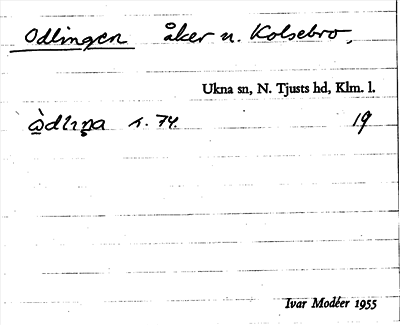 Odlingen åker n. Kolsebro,
Ukna sn, N. Tjusts hd, Klm. l.
s. 74. 19
Ivar Modéer 1955